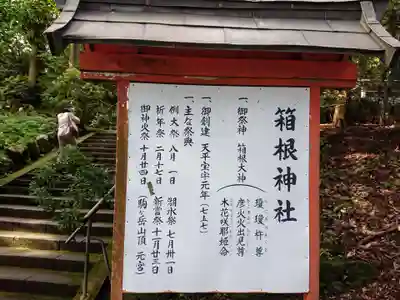 箱根神社
一、御祭神 箱根大神
瓊瓊杵尊
彦火火出見尊
木花咲耶姫命
一、御創建 天平宝字元年(七五七)
一、主な祭典
例大祭 八月 一日
湖水祭 七月卅一日
祈年祭 二月十七日
新嘗祭 十一月廿三日
御神火祭 十月廿四日(駒ヶ岳山頂 元宮)